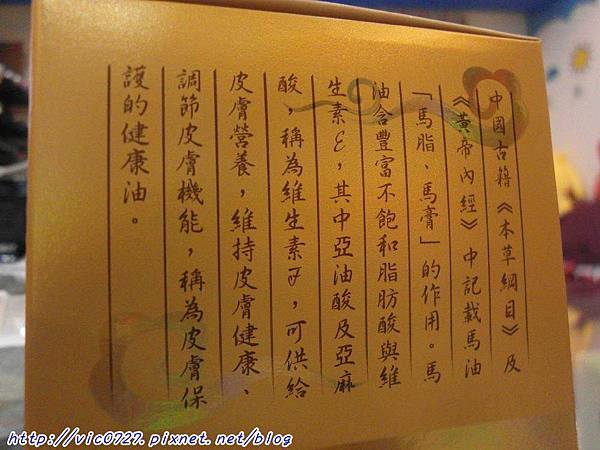 中國古籍《本草綱目》及
《黃帝內經》中記載馬油
「馬脂、馬膏」的作用。馬
油含豐富不飽和脂肪酸與維
生素E，其中亞油酸及亞麻
酸，稱為維生素F，可供給
皮膚營養，維持皮膚健康、
調節皮膚機能，稱為皮膚保
護的健康油。
http://vic0727.pixnet.net/blog